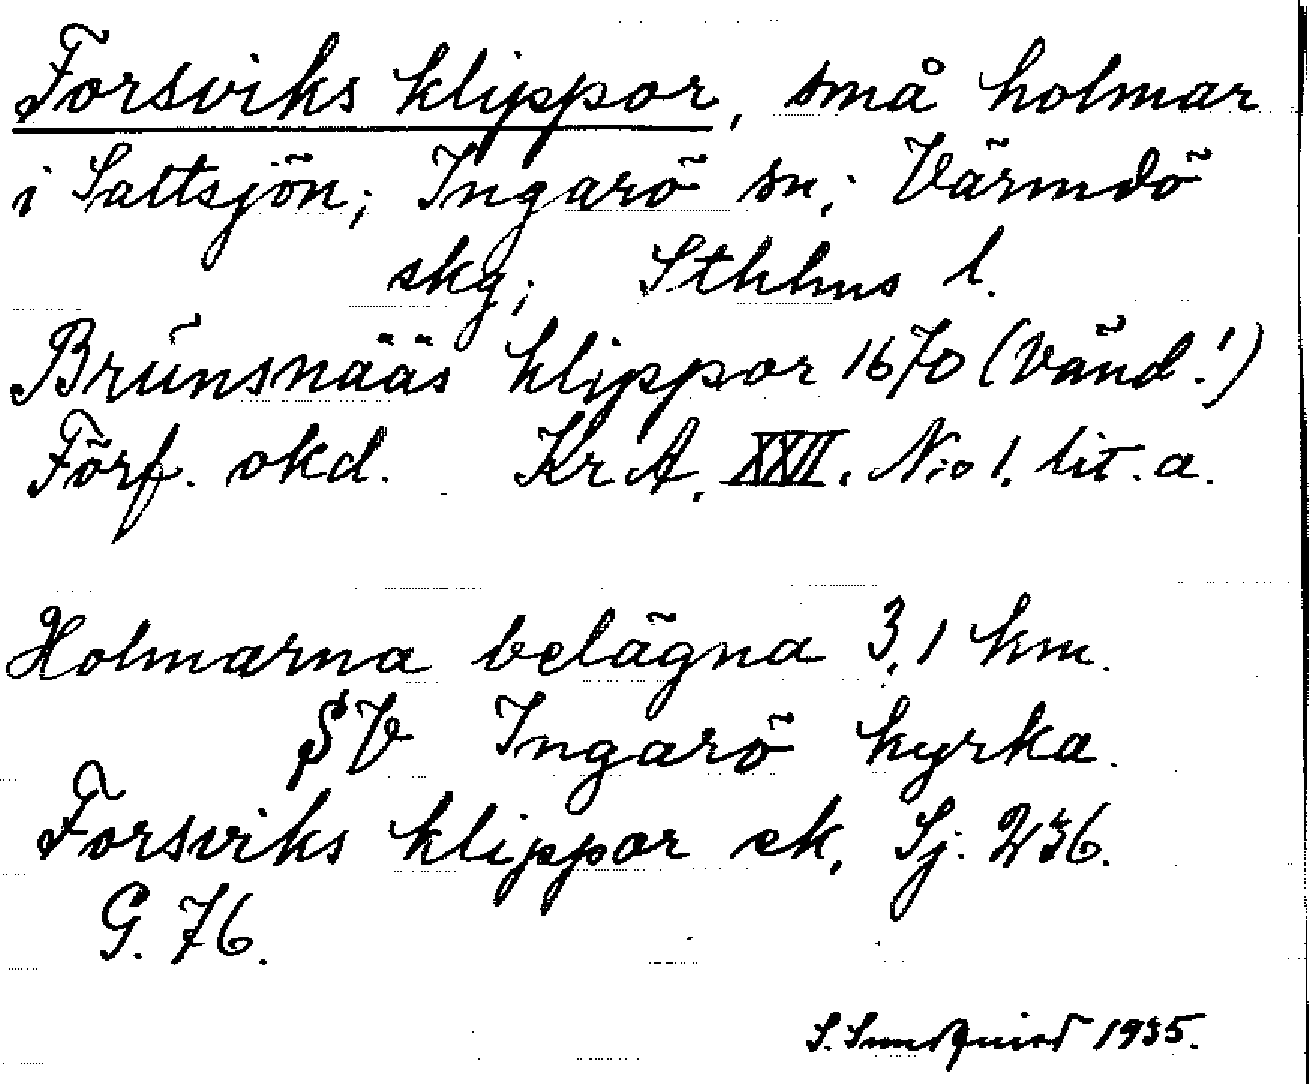 Forsviks klippor, små holmar
i Saltsjön; Ingarö sn; Värmdö
skg; Sthlms l.
Brunsnääs klippor 1670 (Vänd!)
Förf. okd. KrA. XXVI. No 1. lit. a.
Holmarna belägna 3,1 km.
SV Ingarö kyrka.
Forsviks klippor ek. Sj. 236.
G. 76.
S. Sundquist 1935.